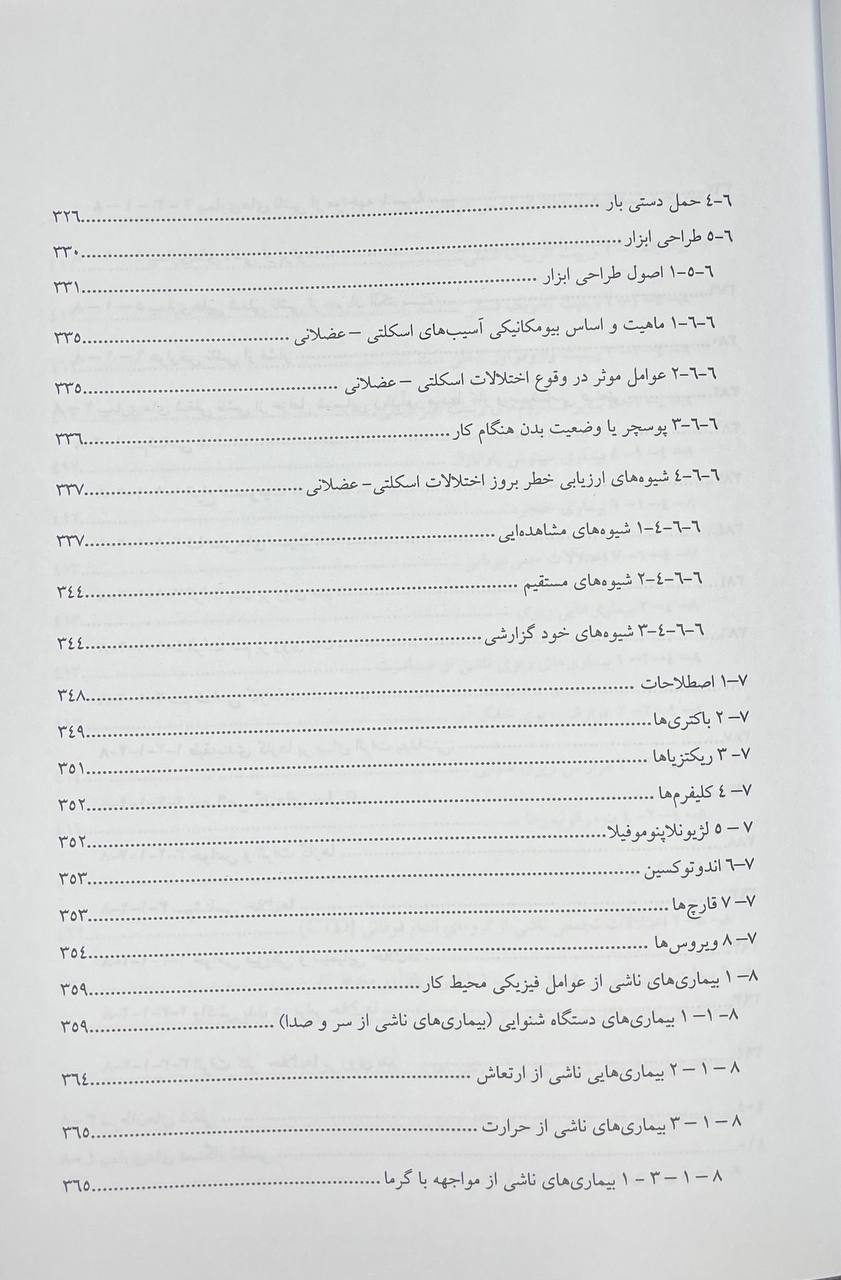 ٦-٤ حمل دستی بار ........................................ ٣٢٦
٦-٥ طراحی ابزار ........................................ ٣٣٠
٦-٥-١ اصول طراحی ابزار ........................................ ٣٣١
٦-٦-١ ماهیت و اساس بیومکانیکی آسیب‌های اسکلتی – عضلانی ........................................ ٣٣٥
٦-٦-٢ عوامل موثر در وقوع اختلالات اسکلتی – عضلانی ........................................ ٣٣٥
٦-٦-٣ پوسچر یا وضعیت بدن هنگام کار ........................................ ٣٣٦
٦-٦-٤ شیوه‌های ارزیابی خطر بروز اختلالات اسکلتی – عضلانی ........................................ ٣٣٧
٦-٦-٤-١ شیوه‌های مشاهده‌ایی ........................................ ٣٣٧
٦-٦-٤-٢ شیوه‌های مستقیم ........................................ ٣٤٤
٦-٦-٤-٣ شیوه‌های خود گزارشی ........................................ ٣٤٤
٧-١ اصطلاحات ........................................ ٣٤٨
٧-٢ باکتری‌ها ........................................ ٣٤٩
٧-٣ ریکتزیاها ........................................ ٣٥١
٧-٤ کلیفرم‌ها ........................................ ٣٥٢
٧-٥ لژیونلاپنوموفیلا ........................................ ٣٥٢
٧-٦ اندوتوکسین ........................................ ٣٥٣
٧-٧ قارچ‌ها ........................................ ٣٥٣
٧-٨ ویروس‌ها ........................................ ٣٥٤
٨-١ بیماری‌های ناشی از عوامل فیزیکی محیط کار ........................................ ٣٥٩
٨-١-١ بیماری‌های دستگاه شنوایی (بیماری‌های ناشی از سر و صدا) ........................................ ٣٥٩
٨-١-٢ بیماری‌هایی ناشی از ارتعاش ........................................ ٣٦٤
٨-١-٣ بیماری‌های ناشی از حرارت ........................................ ٣٦٥
٨-١-٣-١ بیماری‌های ناشی از مواجهه با گرما ........................................ ٣٦٥